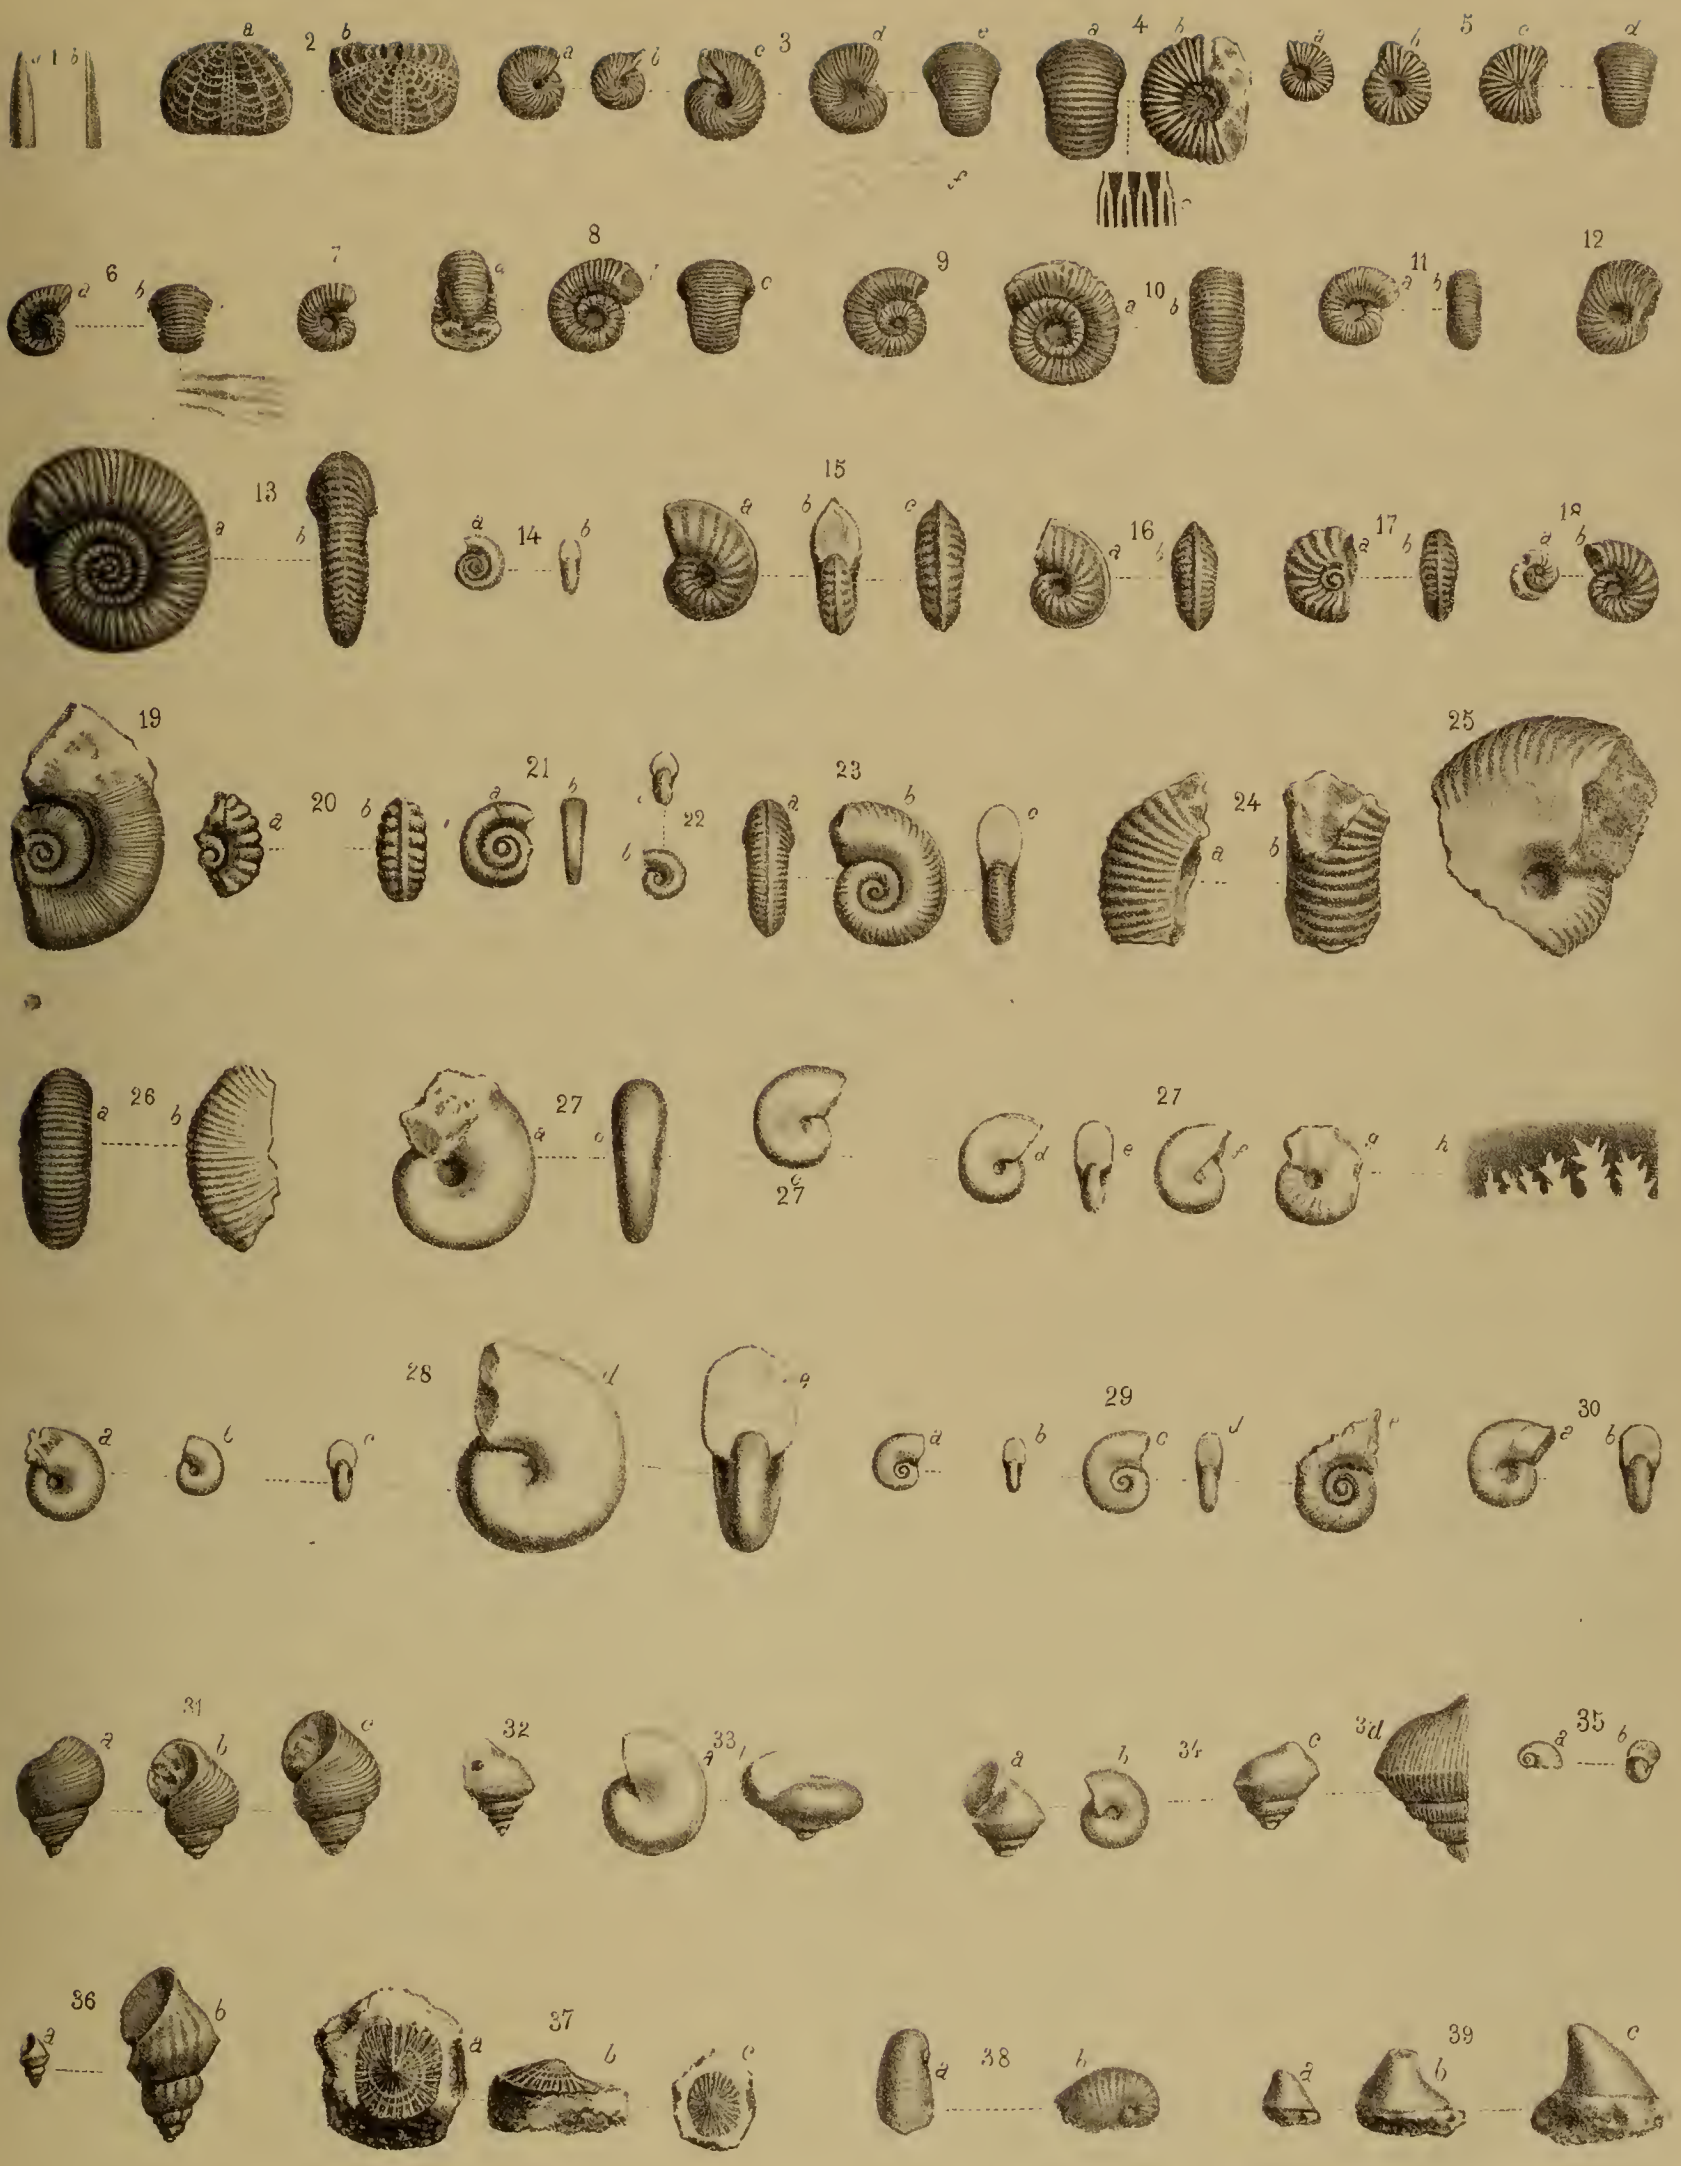 a 1 b
a 2 b
a b c 3 d e
a 4 b
c
a b 5 c d
f
6 a b
7
8 a c
9
10 a b
11 a b
12
13 a b
a 14 b
15 a b c
16 a b
17 a b
18 a b
19
20 a b
21 a b
22 b
23 a b c
24 a b
25
26 a b
27 a c
c
27
27 d e f g h
28 a b c d e
29 a b c d e
30 a b
31 a b c
32
33 a
34 a b c
3d
35 a b
36 a b
37 a b c
38 a b
39 a b c